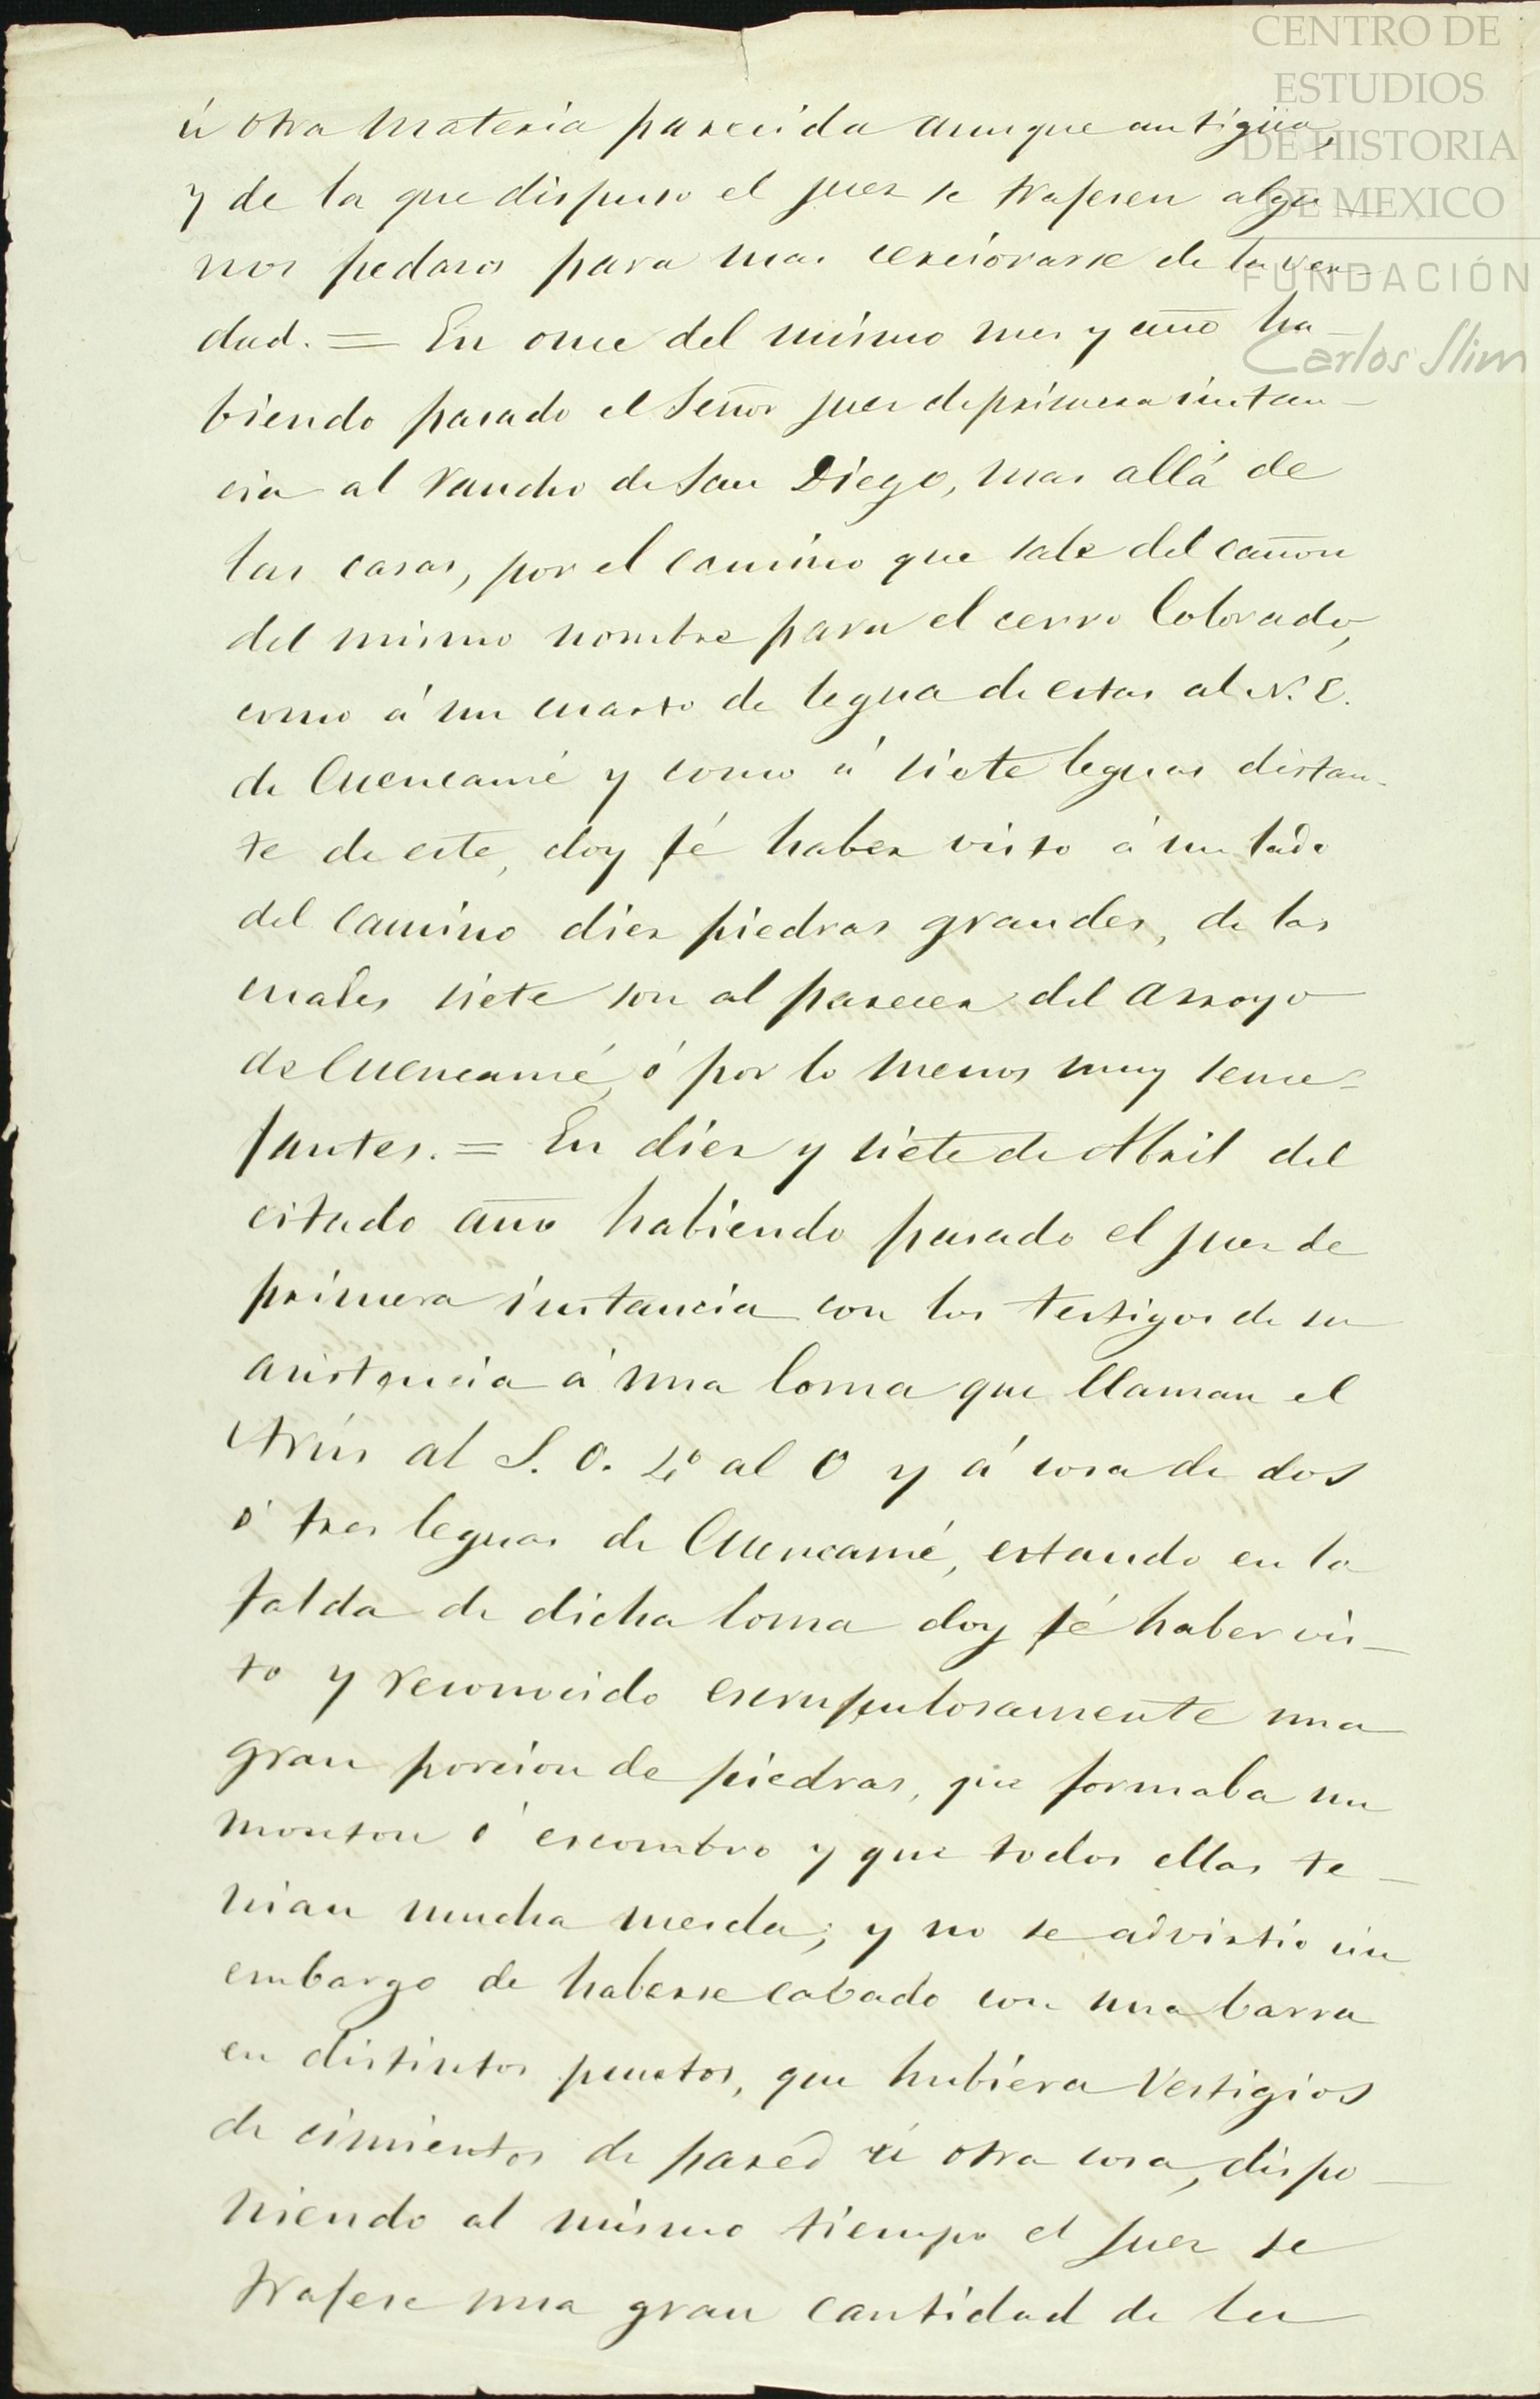 CENTRO DE
ESTUDIOS
DE HISTORIA
DE MEXICO
FUNDACIÓN
Carlos Slim
ú otra materia parecida aunque antigüa,
y de la que dispuso el juez se trajesen algu
nos pedasos para mas cerciorarse de la ver-
dad. = En once del mismo mes y año ha-
biendo pasado el Señor juez de primera instan-
cia al rancho de San Diego, mas allá de
las casas, por el camino que sale del cañon
del mismo nombre para el cerro Colorado,
como á un cuarto de legua de estas al N. E.
de Cuencamé y como á siete leguas distan-
te de este, doy fé haber visto á un lado
del camino diez piedras grandes, de las
cuales siete son al parecer del arroyo
de Cuencamé, ó por lo menos muy seme-
jantes. = En diez y siete de Abril del
citado año habiendo pasado el juez de
primera instancia con los testigos de su
asistencia á una loma que llaman el
al S. O. 4º al O y á cosa de dos
ó tres leguas de Cuencamé, estando en la
falda de dicha loma doy fé haber vis-
to y reconocido escrupulosamente una
gran porcion de piedras, que formaba un
monton ó escombro y que todas ellas te-
nian mucha mescla; y no se advirtió sin
embargo de haberse cabado con una barra
en distintos puntos, que hubiera vestigios
de cimientos de pared ú otra cosa, dispo-
niendo al mismo tiempo el juez se
trajese una gran cantidad de la